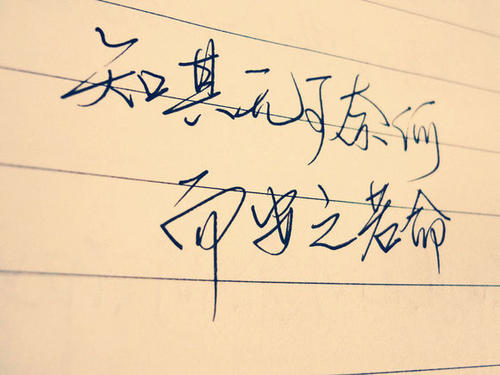 知其无可奈何
而安之若命